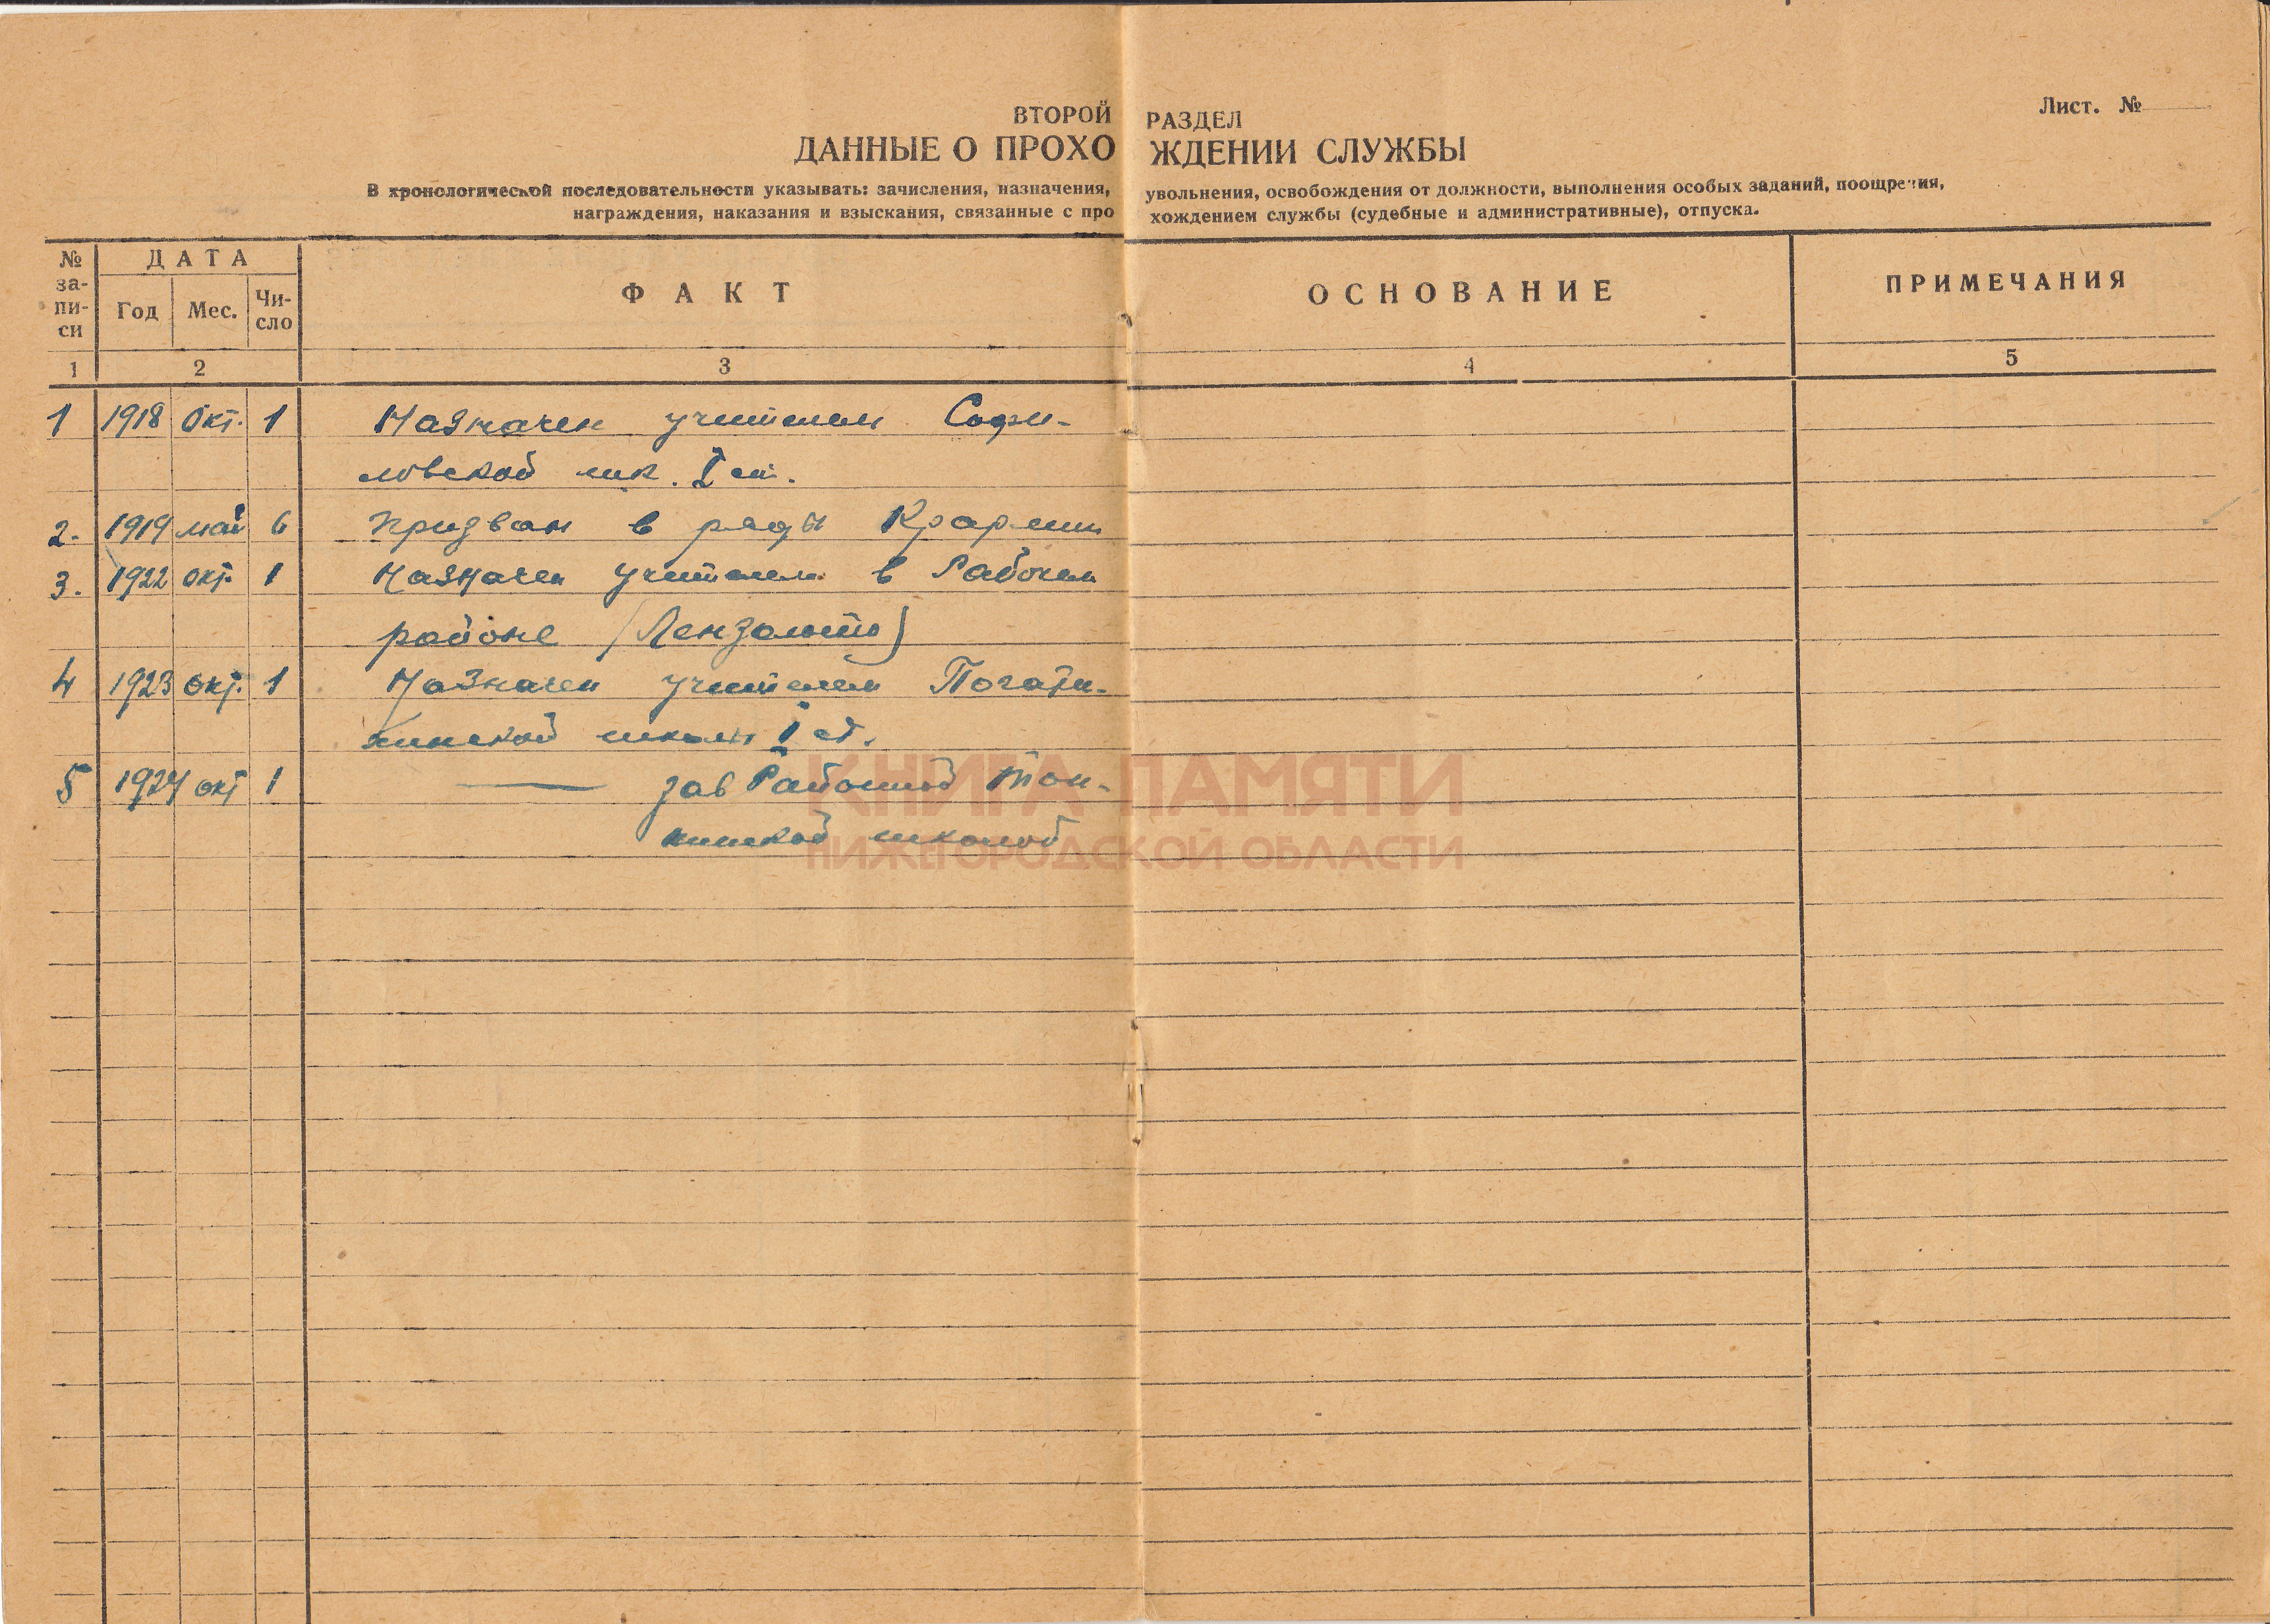 ВТОРОЙ РАЗДЕЛ
Лист. №
ДАННЫЕ О ПРОХОЖДЕНИИ СЛУЖБЫ
В хронологической последовательности указывать: зачисления, назначения, увольнения, освобождения от должности, выполнения особых заданий, поощрения,
награждения, наказания и взыскания, связанные с прохождением службы (судебные и административные), отпуска.
№ за-пи-си ДАТА Год Мес. Чи-сло ФАКТ ОСНОВАНИЕ ПРИМЕЧАНИЯ
1 2 3 4 5
1 1918 Окт. 1 Назначен учителем Софи-
ловской шк. I ст.
2. 1919 май 6 Призван в ряды Крармии
3. 1922 окт. 1 Назначен учителем в Рабочем
районе (Лензолото)
4 1923 окт. 1 Назначен учителем
школы I ст.
5 1924 окт 1 —— зав Районной Тон-
кинской школой
КНИГА ПАМЯТИ
НИЖЕГОРОДСКОЙ ОБЛАСТИ